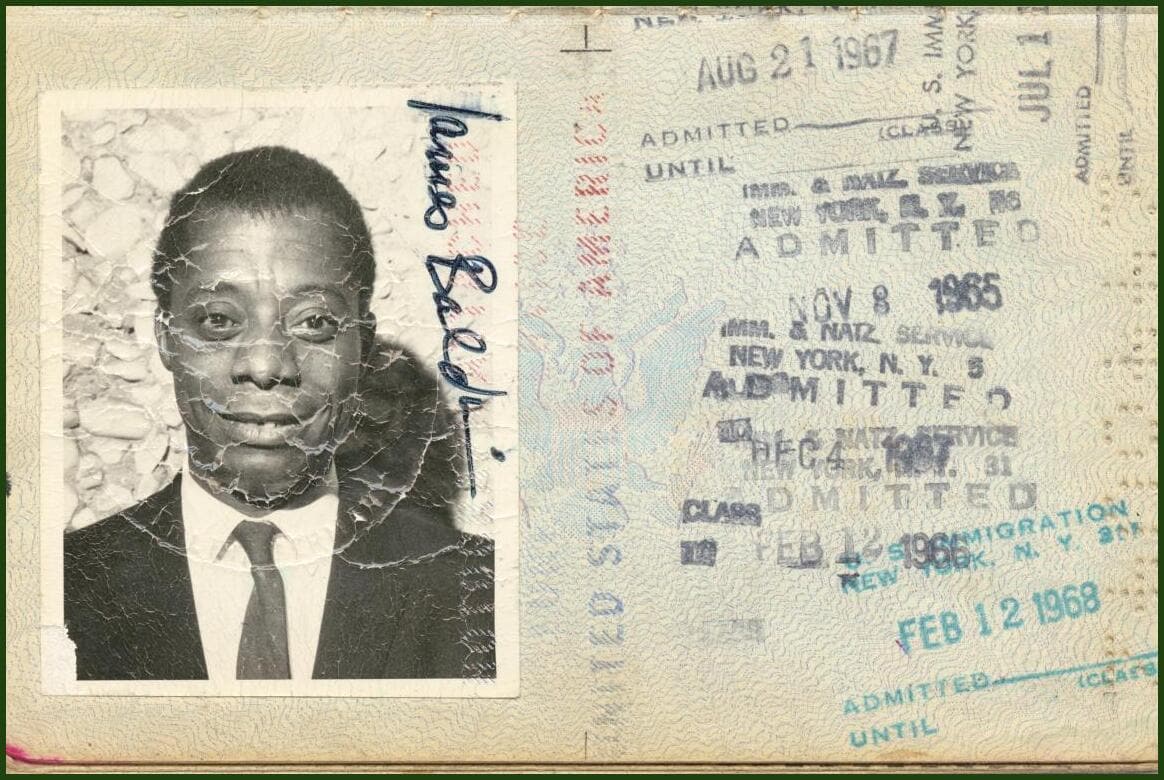 James Baldwin
UNITED STATES OF AMERICA
NEW YORK, N.
AUG 21 1967
ADMITTED (CLASS
UNTIL
U. S. IMM
NEW YORK,
JUL 1
ADMITTED
UNTIL
IMM. & NATZ. SERVICE
NEW YORK, N. Y.
ADMITTED
NOV 8 1965
IMM. & NATZ SERVICE
NEW YORK, N. Y. 5
ADMITTED
& NATZ SERVICE
DEC 4 1967
NEW YORK, N.Y. 31
ADMITTED
CLASS
TO
FEB 12 1966
U. S. IMMIGRATION
NEW YORK, N. Y.
FEB 12 1968
ADMITTED (CLASS
UNTIL